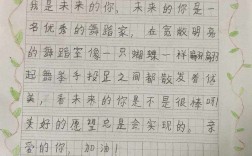 我是未来的你，未来的你是一
名优秀的舞蹈家，在宽敞明亮
的舞蹈室像一只蝴蝶一样翩翩
起舞举手投足之间都散发着优
美，看未来的你是不是很棒啊！
美好的愿望总是会实现的，亲
爱的你，加油！